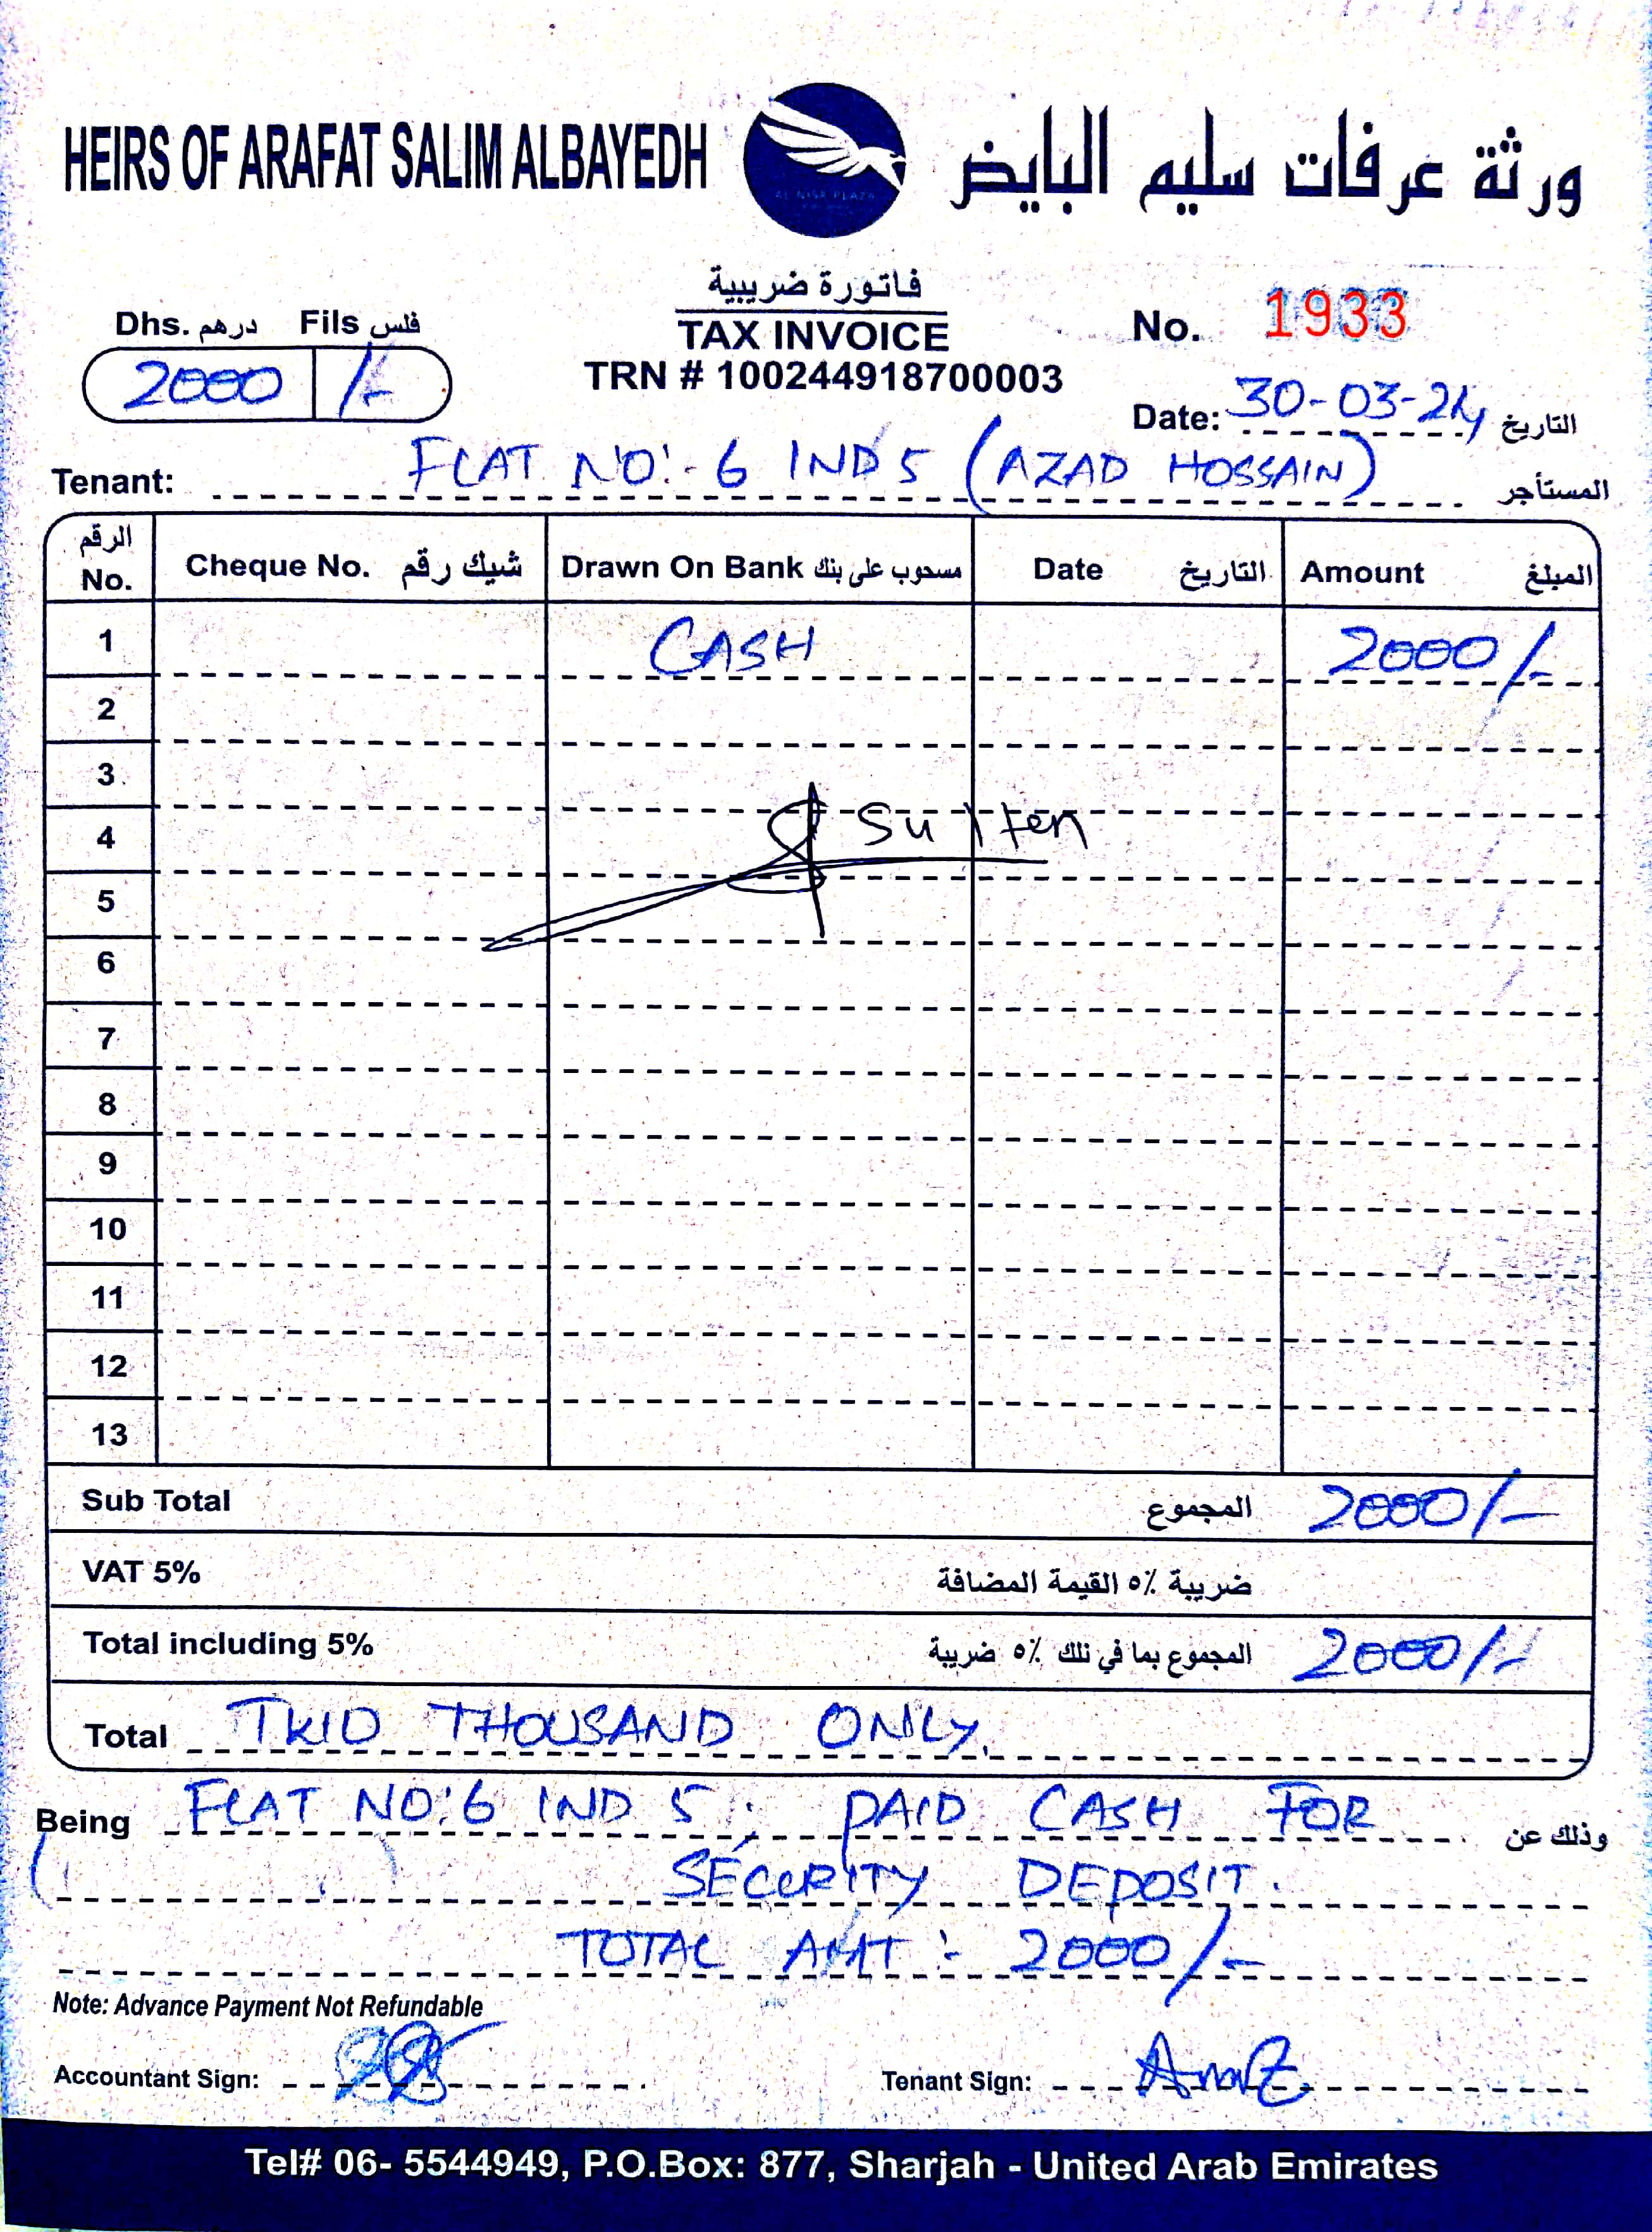 HEIRS OF ARAFAT SALIM ALBAYEDH
ورثة عرفات سليم البايض
AL NISR PLAZA
فاتورة ضريبية
TAX INVOICE
TRN # 100244918700003
Dhs. درهم Fils فلس
2000 /-
No. 1933
Date: 30-03-24 التاريخ
Tenant: FLAT NO:- 6 IND 5 (AZAD HOSSAIN) المستأجر
الرقم No. Cheque No. شيك رقم Drawn On Bank مسحوب على بنك Date التاريخ Amount المبلغ
1 CASH 2000/-
2
3
4 Sulten
5
6
7
8
9
10
11
12
13
Sub Total المجموع 2000/-
VAT 5% ضريبة ٥٪ القيمة المضافة
Total including 5% المجموع بما في ذلك ٥٪ ضريبة 2000/-
Total TWO THOUSAND ONLY.
Being FLAT NO:6 IND 5. PAID CASH FOR وذلك عن
SECURITY DEPOSIT.
TOTAL AMT :- 2000/-
Note: Advance Payment Not Refundable
Accountant Sign:
Tenant Sign:
Tel# 06- 5544949, P.O.Box: 877, Sharjah - United Arab Emirates